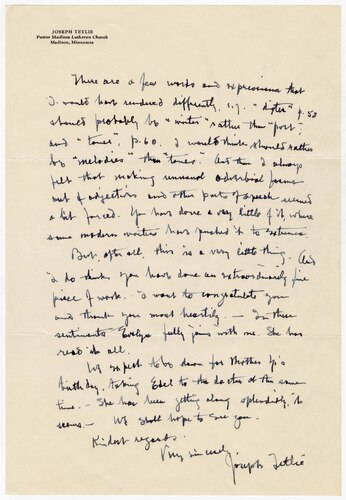 JOSEPH TETLIE
Pastor Madison Lutheran Church
Madison, Minnesota
There are a few words and expressions that
I would have rendered differently, e.g. "dikter" p. 58
should probably be "writer" rather than "poet",
and "toner", p. 60. I would think should rather
be "melodies" than "tones". And then I always
felt that making unusual adverbial forms
out of adjectives and other parts of speech seemed
a bit forced. You have done a very little of it, where
some modern writers have pushed it to extremes.
But, after all, this is a very little thing. And
I do think you have done an extraordinarily fine
piece of work. I want to congratulate you
and thank you most heartily. — In these
sentiments Evelyn fully joins with me. She has
read it all.
We expect to be down for Mother
birthday, taking Edel to the doctor at the same
time. — She has been getting along splendidly, it
seems — We shall hope to see you.
Kindest regards.
Very sincerely
Joseph Tetlie